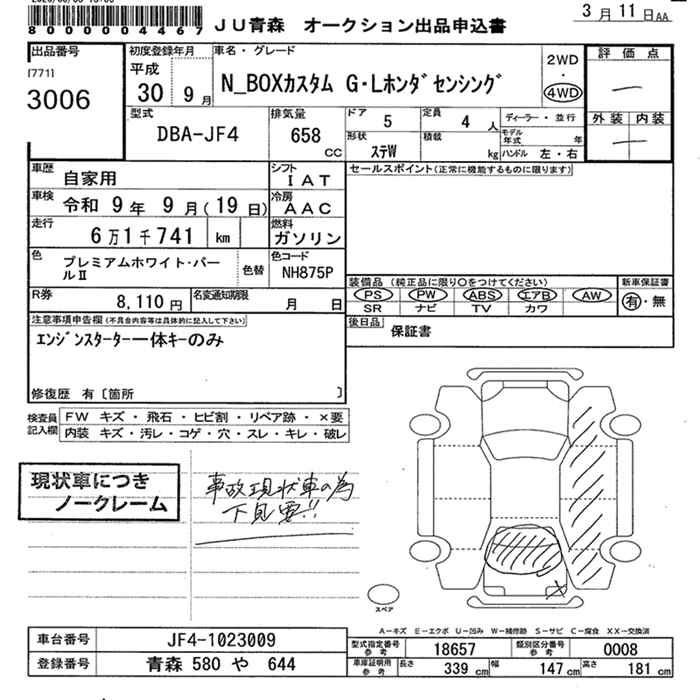 8 0 0 0 0 0 4 4 6 7
ＪＵ青森　オークション出品申込書
3月11日AA
出品番号
[771]
3006
初度登録年月
平成
30　9月
車名・グレード
N_BOXカスタム　G・Lホンダセンシング
2WD
・
4WD
評価点
―
外装　内装
―
型式
DBA-JF4
排気量
658
CC
ドア
5
定員
4　人
ディーラー・並行
形状
ステW
積載
kg
モデル年式　年
ハンドル　左・右
車歴
自家用
シフト
IAT
セールスポイント(正常に機能するものに限ります)
車検
令和　9年　9月(19日)
冷房
AAC
走行
6万1千741　km
燃料
ガソリン
色
プレミアムホワイト・パールII
色替
色コード
NH875P
装備品(純正品に限り○をつけてください)
新車保証書
PS　PW　ABS　エアB　AW
SR　ナビ　TV　カワ
有・無
R券
8,110円
名変通知期限
月　日
後日品
保証書
注意事項申告欄(不具合内容等は具体的に記入して下さい)
エンジンスターター一体キーのみ
修復歴　有〔箇所　〕
検査員
記入欄
FW　キズ・飛石・ヒビ割・リペア跡・×要
内装　キズ・汚レ・コゲ・穴・スレ・キレ・破レ
現状車につき
ノークレーム
事故現状車の為
下見要!!
スペア
A－キズ　E－エクボ　U－凹み　W－補修跡　S－サビ　C－腐食　XX－交換済
車台番号
JF4-1023009
型式指定番号
参考
18657
類別区分番号
参考
0008
登録番号
青森 580 や　644
車庫証明用
参考
長さ
339 cm
幅
147 cm
高さ
181 cm